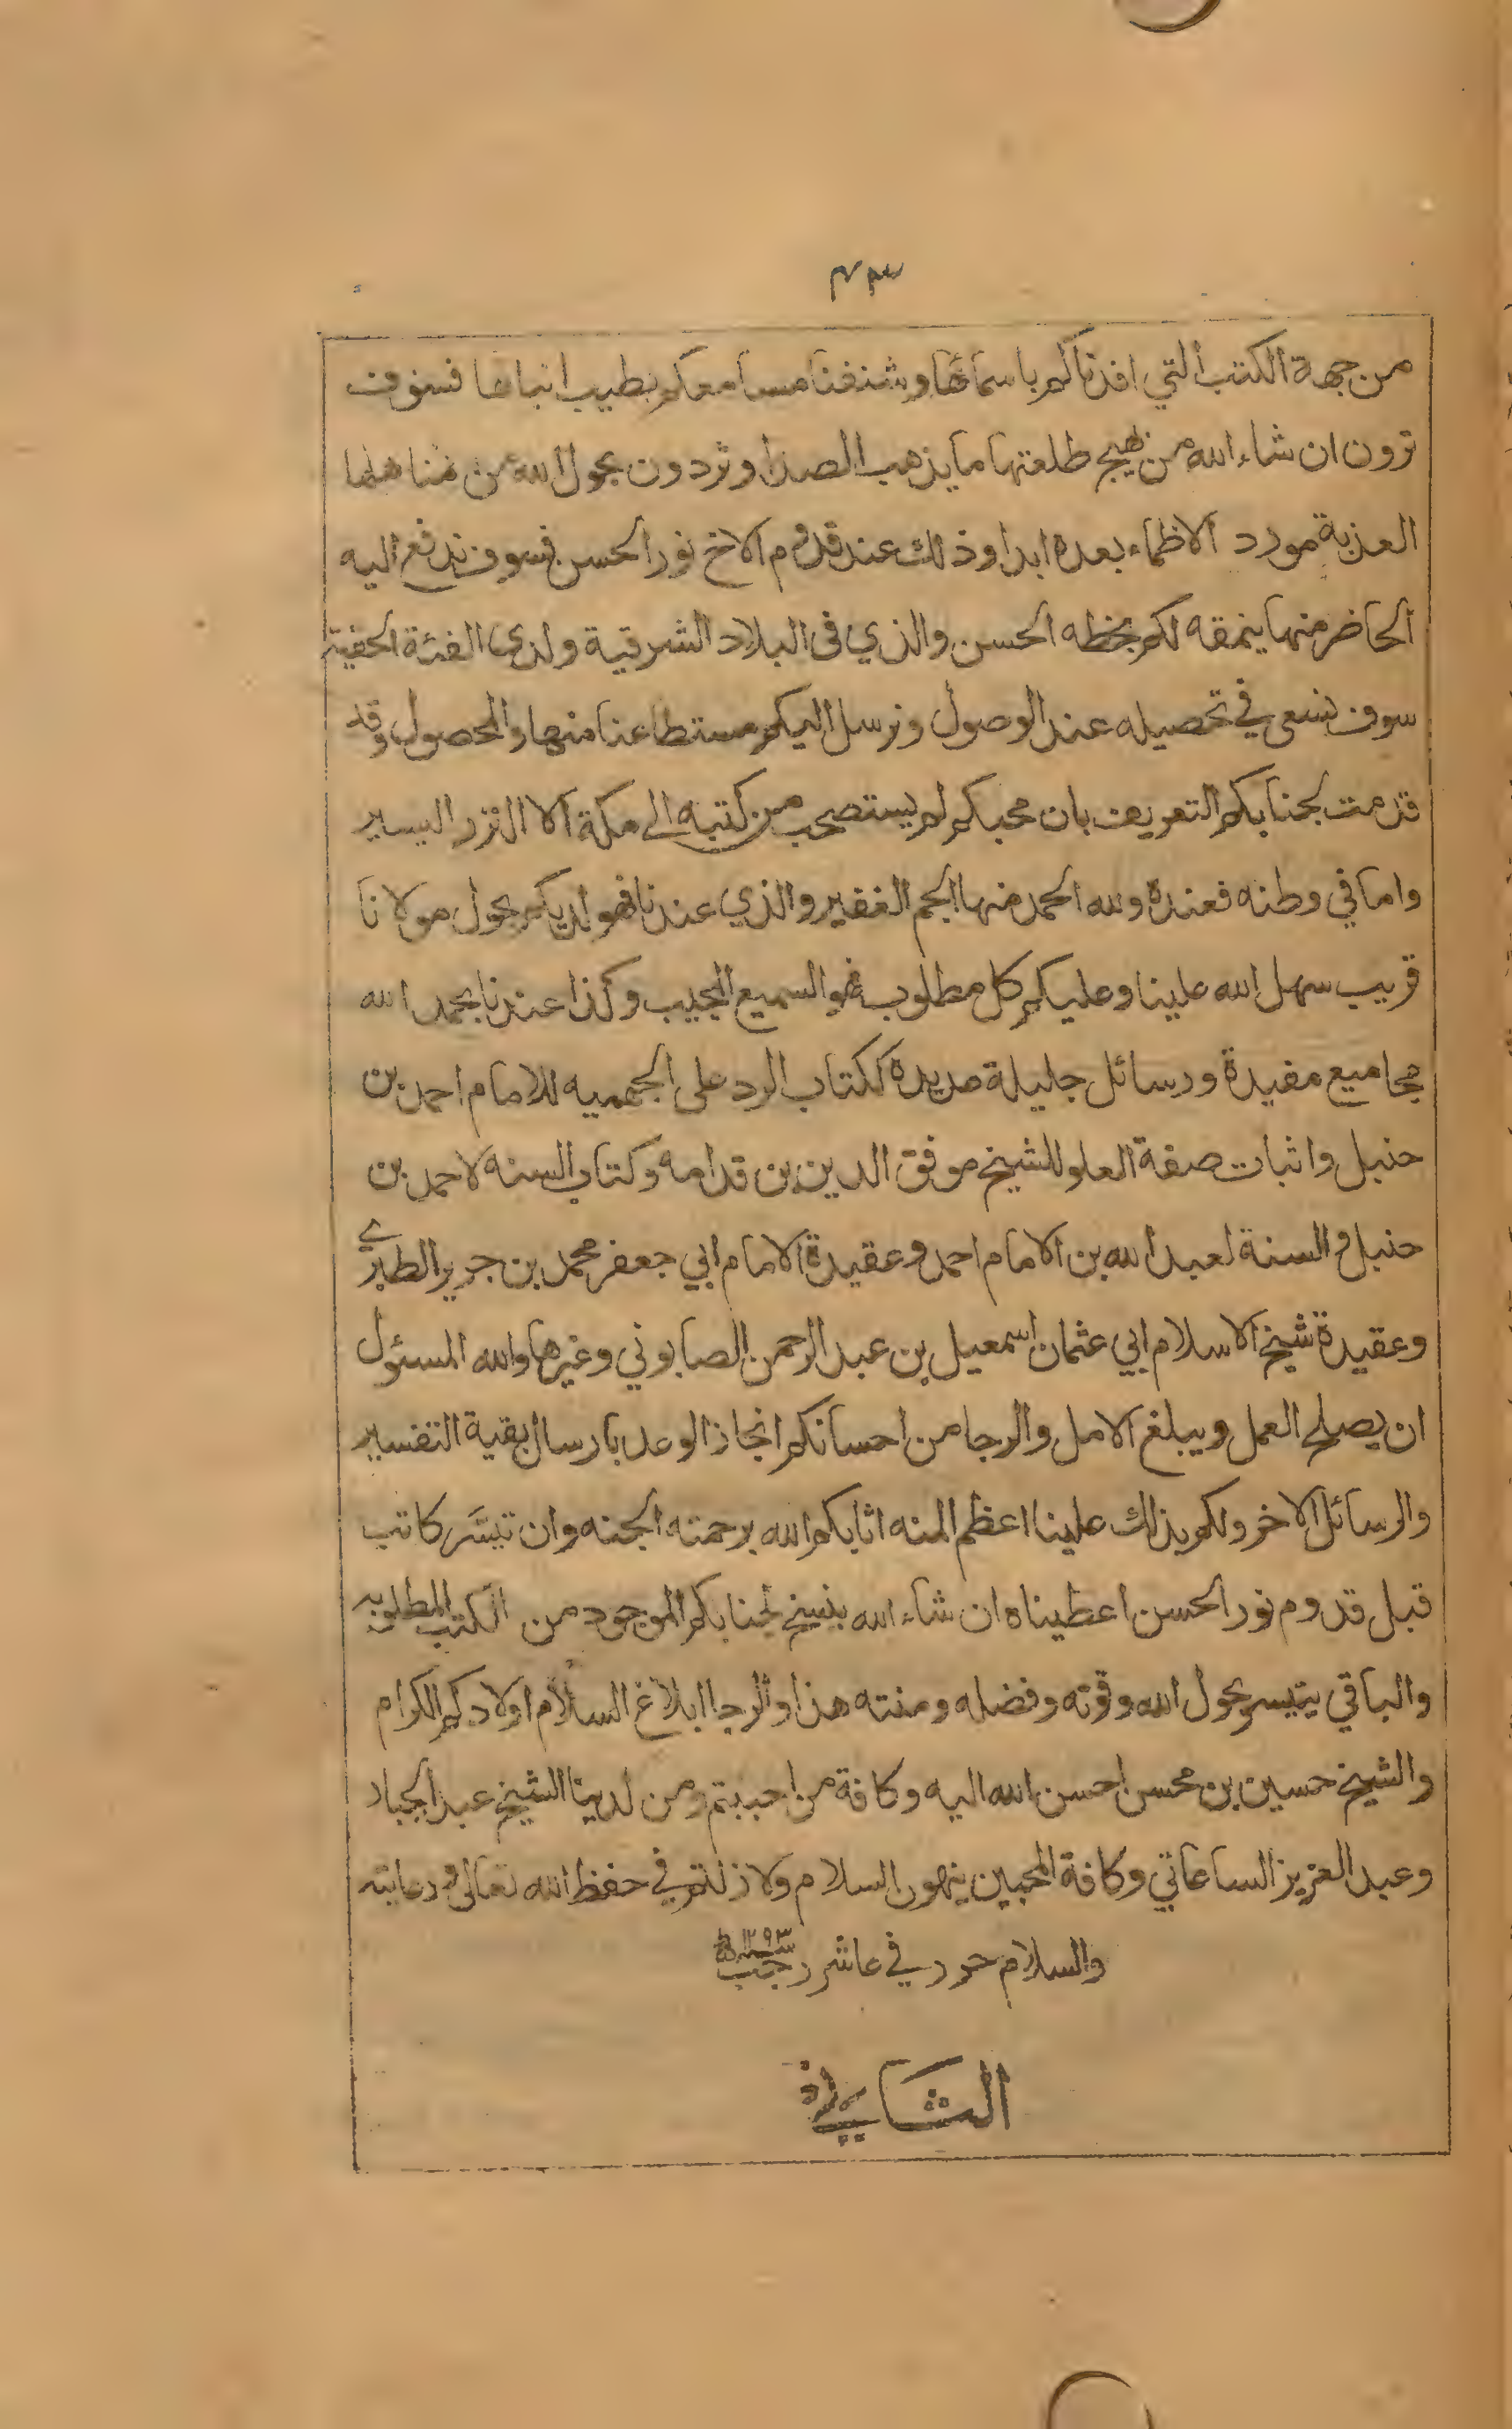 من جهة الكتب التي افدناكم باسمائها وشنفنا مسامعكم بطيب انبائها فسوف
ترون ان شاء الله من بهيج طلعتها ما يذهب الصدا وتردون بحول الله من مناهلها
العذبة مورد لاظماء بعده ابدا وذلك عند قدوم الاخ نور الحسن فسوف ندفع اليه
الحاضر منها ينمقه لكم بخطه الحسن والذي في البلاد الشرقية ولدى الفئة الحفية
سوف نسعى في تحصيله عند الوصول ونرسل اليكم مستطاعنا منها والمحصول وقد
قدمت لجنابكم التعريف بان محبكم لم يستصحب من كتبه الى مكة الا النزر اليسير
واما في وطنه فعنده ولله الحمد منها الجم الغفير والذي عندنا فهو لديكم بحول مولانا
قريب سهل الله علينا وعليكم كل مطلوب فهو السميع المجيب وكذا عندنا بحمد الله
مجاميع مفيدة ورسائل جليلة عديدة ككتاب الرد على الجهميه للامام احمد بن
حنبل واثبات صفة العلو للشيخ موفق الدين بن قدامه وكتاب السنه لاحمد بن
حنبل والسنة لعبد الله بن الامام احمد وعقيدة الامام ابي جعفر محمد بن جرير الطبري
وعقيدة شيخ الاسلام ابي عثمان اسمعيل بن عبد الرحمن الصابوني وغيرها والله المسئول
ان يصلح العمل ويبلغ الامل والرجا من احسانكم انجاز الوعد بارسال بقية التفسير
والرسائل الاخر ولكم بذلك علينا اعظم المنه اثابكم الله برحمته الجنه وان تيسّر كاتب
قبل قدوم نور الحسن اعطيناه ان شاء الله ينسخ لجنابكم الموجود من الكتب المطلوبه
والباقي يتيسر بحول الله وقوته وفضله ومنته هذا والرجا ابلاغ السلام اولادكم الكرام
والشيخ حسين بن محسن احسن الله اليه وكافة من احببتم ومن لدينا الشيخ عبد الجبار
وعبد العزيز الساعاتي وكافة المحبين ينهون السلام ولا زلتم في حفظ الله تعالى ورعايته
والسلام حرر في عاشر رجب سنة ١٢٩٣